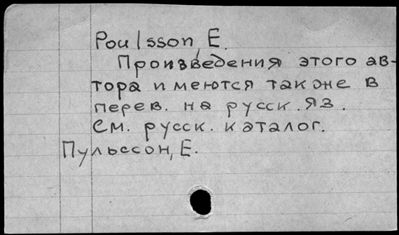 Poulsson, E.
Произведения этого ав-
тора имеются также в
перев. на русск. яз.
См. русск. каталог.
Пульссон, Е.